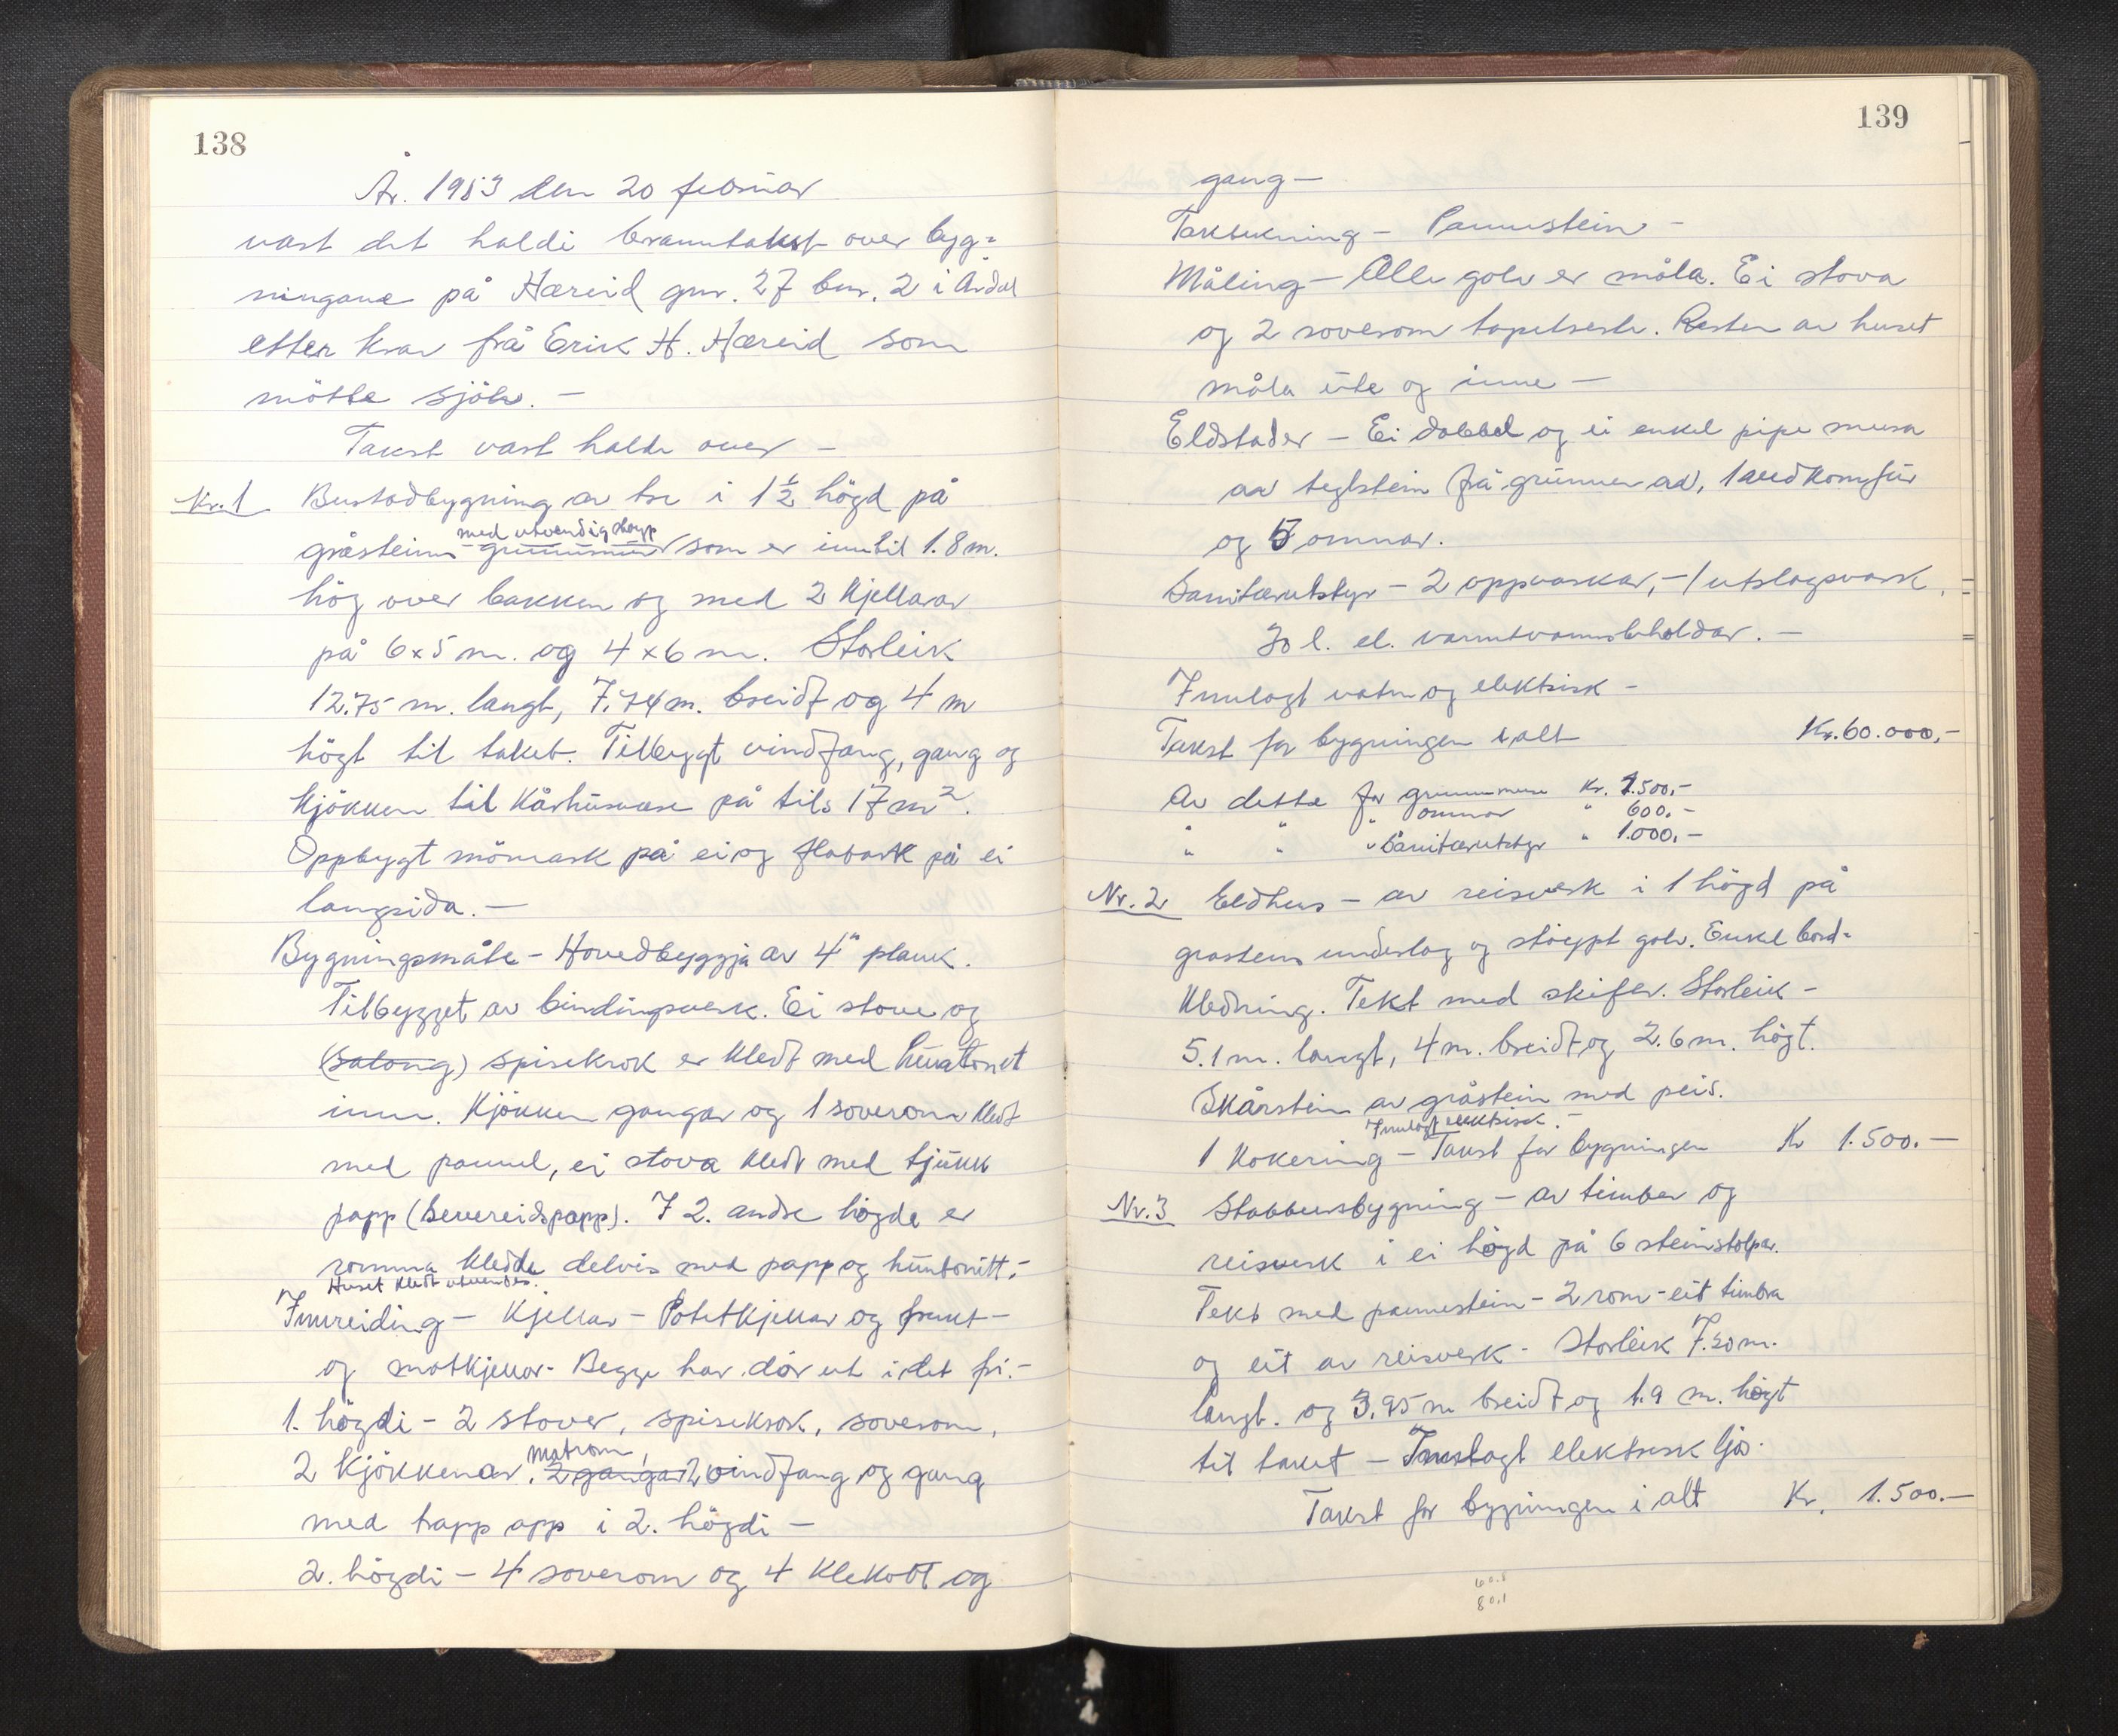 138
År. 1953 den 20 februar
vart det haldi branntakst over byg=
ningane på Hæreid gnr. 27 bnr. 2 i Årdal
etter krav frå Erik H. Hæreid som
mötte sjölv. —
Takst vart halde over —
Nr. 1 Bustadbygning av tre i 1½ högd på
med utvendig støyp
gråsteins grunnmur som er inntil 1.8 m.
hög over bakken og med 2 kjellarar
på 6x5 m. og 4x6 m. Storleik
12.75 m. langt, 7.74 m. breidt og 4 m
högt til taket. Tilbygt vindfang, gang og
kjökken til kårhusvære på tils 17 m².
Oppbygt mönark på ei og flatark på ei
langsida. —
Bygningsmåte - Hovedbyggja av 4" plank.
Tilbygget av bindingsverk. Ei stove og
(salong) spisekrok er kledt med huntonit
inn. Kjökken gangar og 1 soverom kledt
med pannel, ei stova kledt med tjukk
papp (bevereidspapp). I 2. andre högda er
romma kledde delvis med papp og huntonitt.-
Huset kledt utvendes.
Innreiding - Kjellar - Potetkjellar og frukt-
og matkjellar - Begge har dör ut i det fri. -
1. högdi - 2 stover, spisekrok, soverom,
matrom,
2 kjökkenar, 2 gangar 2 vindfang og gang
med trapp opp i 2. högdi —
2. högdi - 4 soverom og 4 klekott og
139
gang —
Taktekning - Pannestein -
Måling - Alle golv er måla. Ei stova
og 2 soverom tapetserte. Resten av huset
måla ute og inne —
Eldstader - Ei dobbel og ei enkel pipe mura
av teglstein frå grunnen av, 1 vedkomfur
og 5 omnar.
Sanitærutstyr - 2 oppvaskar, - 1 utslagsvask,
30 l. el. varmtvannsbeholdar. —
Innlagt vatn og elektrisk -
Takst for bygningen i alt Kr. 60.000,-
Av dette for grunnmur Kr. 1.500,-
" " " omnar " 600.-
" " " Sanitærutstyr " 1.000,-
Nr. 2 Eldhus - av reisverk i 1 högd på
gråsteins underlag og stöypt golv. Enkel bord=
kledning. Tekt med skifer. Storleik -
5.1 m. langt, 4 m. breidt og 2.6 m. högt.
Skårstein av gråstein med peis.
Innlagt elektrisk. -
1 kokering - Takst for bygningen Kr 1.500.—
Nr. 3 Stabbursbygning - av timber og
reisverk i ei högd på 6 steinstolpar.
Tekt med pannestein - 2 rom - eit timbra
og eit av reisverk - Storleik 7.50 m.
langt. og 3.95 m breidt og 1.9 m. högt
til taket - Innlagt elektrisk ljos.
Takst for bygningen i alt Kr. 1.500.—
60.1
80.1